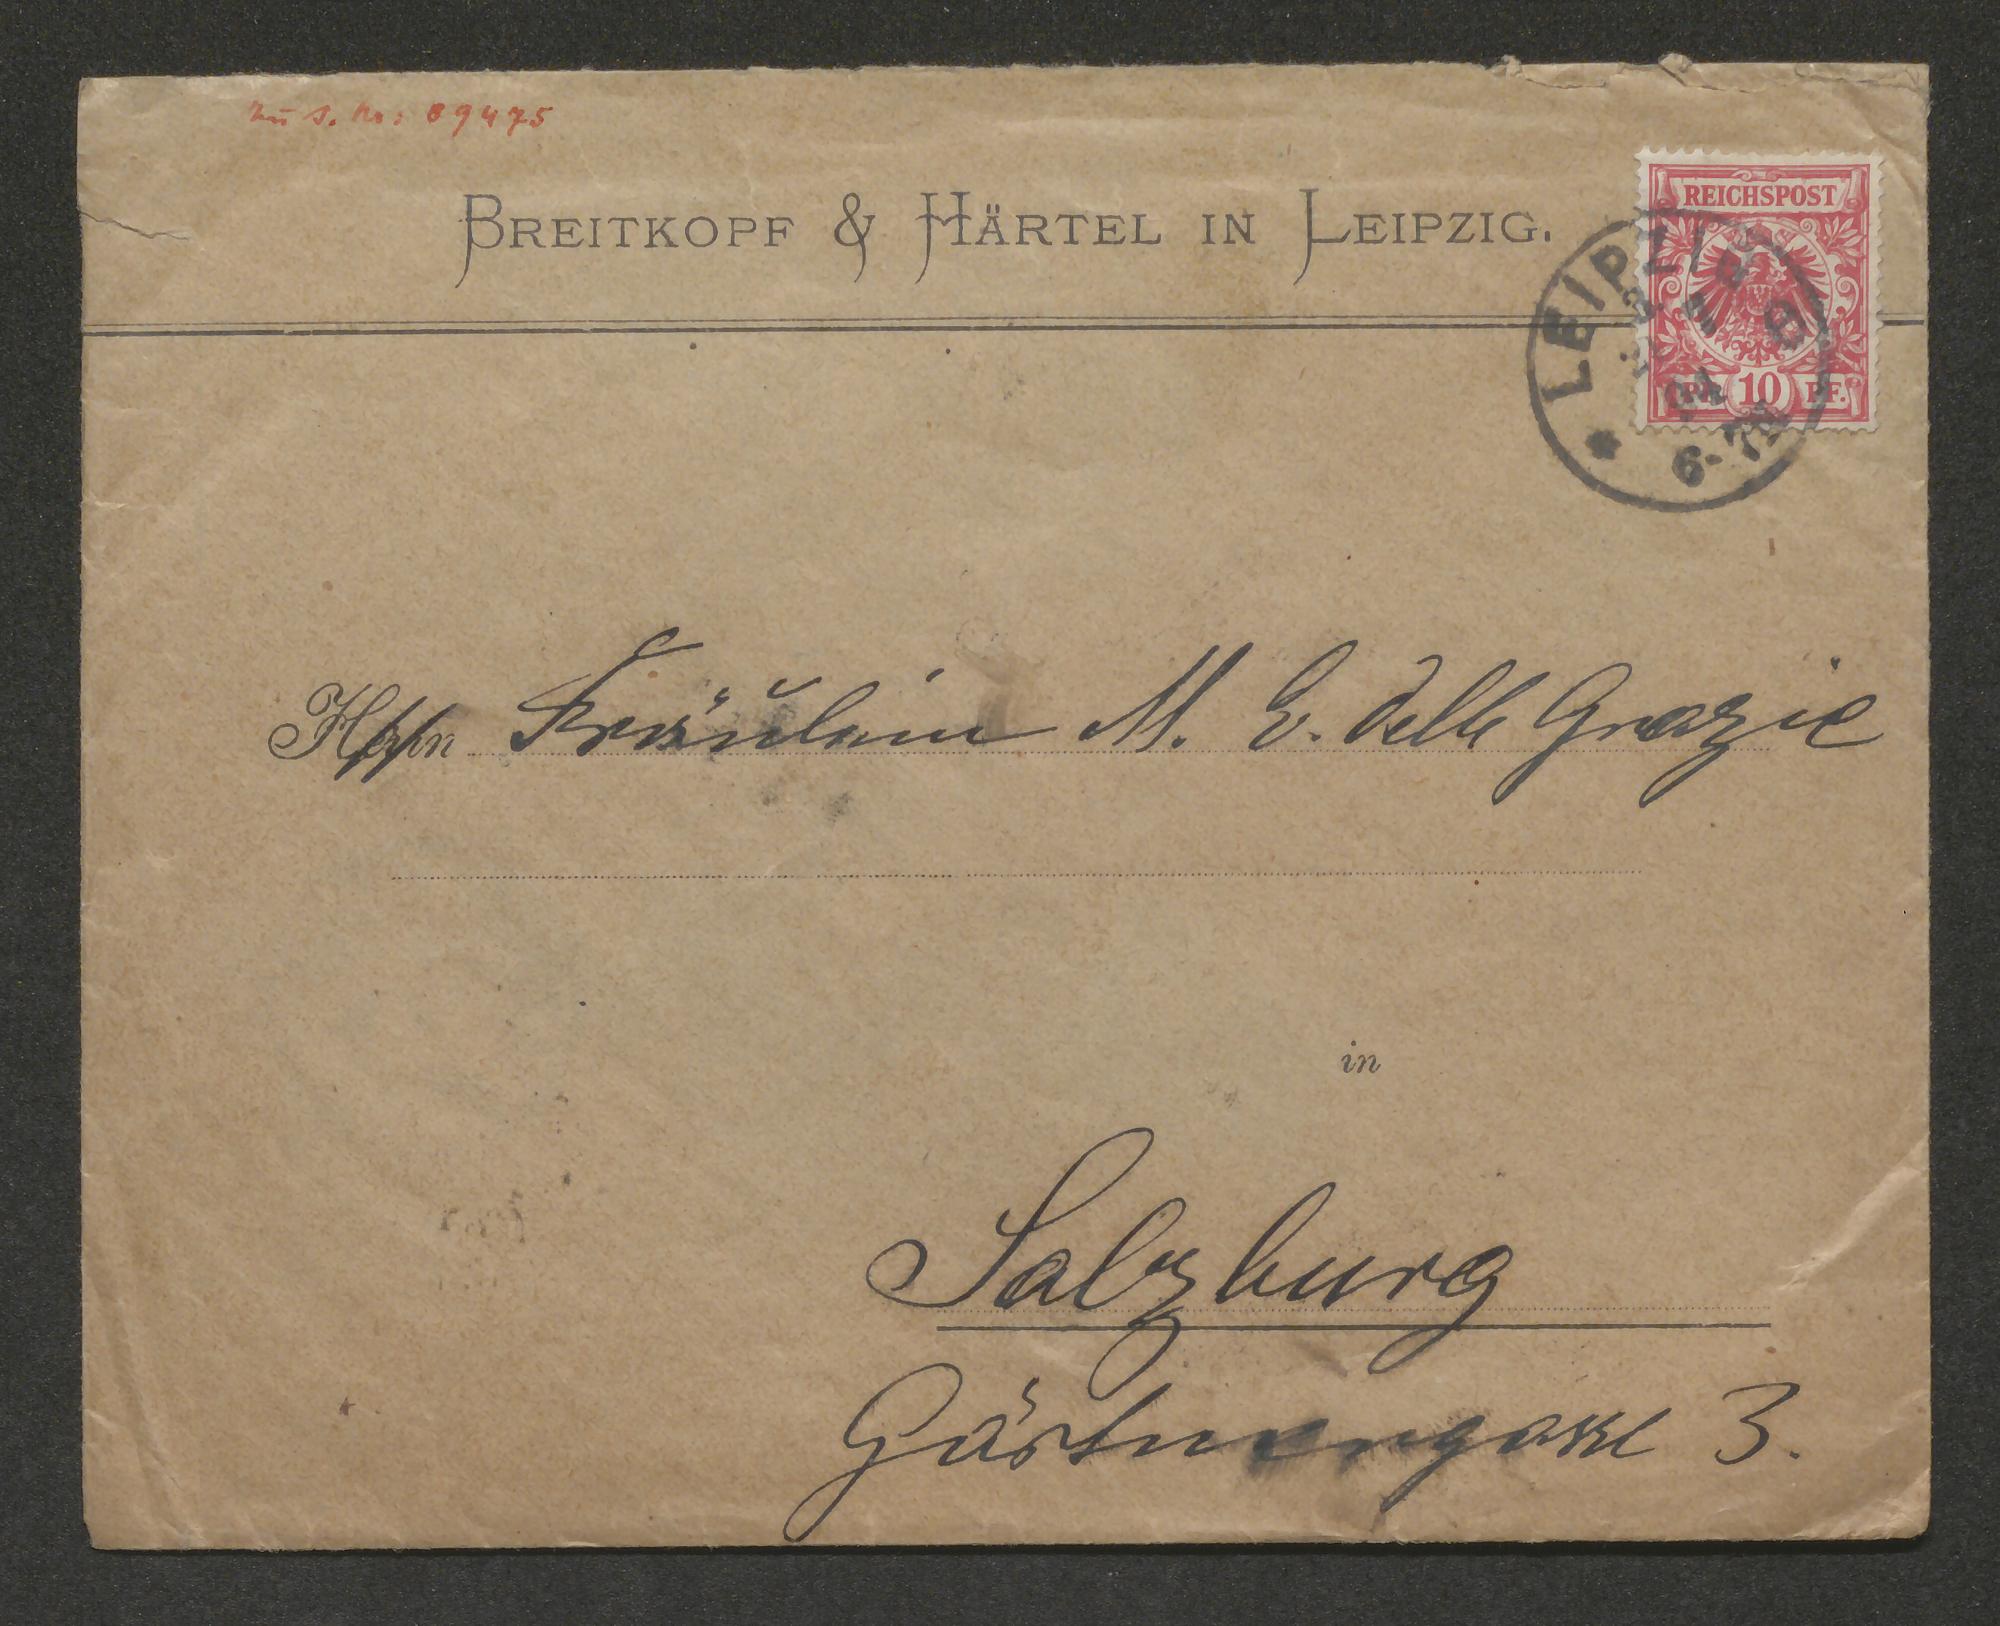 No: 89475
BREITKOPF & HÄRTEL IN LEIPZIG.
REICHSPOST
10 PF.
LEIPZIG
6-7N
Herrn Fräulein M. E. delle Grazie
in
Salzburg
Gärtnergasse 3.